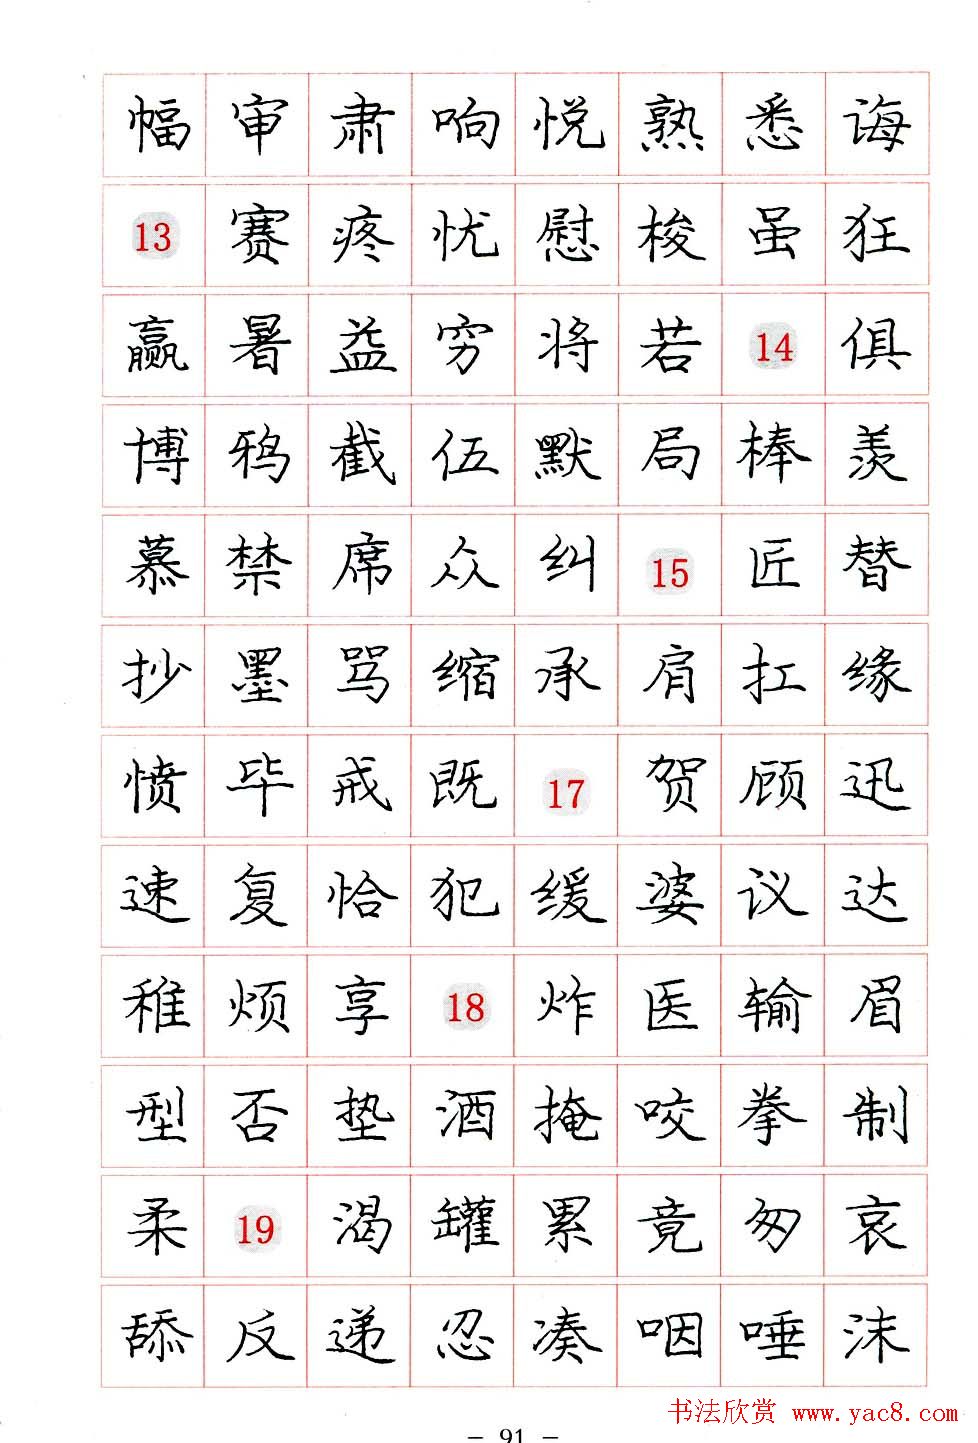 幅 审 肃 响 悦 熟 悉 诲
13 赛 疼 忧 慰 梭 虽 狂
赢 暑 益 穷 将 若 14 俱
博 鸦 截 伍 默 局 棒 羡
慕 禁 席 众 纠 15 匠 替
抄 墨 骂 缩 承 肩 扛 缘
愤 毕 戒 既 17 贺 顾 迅
速 复 恰 犯 缓 婆 议 达
稚 烦 享 18 炸 医 输 眉
型 否 垫 酒 掩 咬 拳 制
柔 19 渴 罐 累 竟 匆 哀
舔 反 递 忍 凑 咽 唾 沫
书法欣赏 www.yac8.com
– 91 –